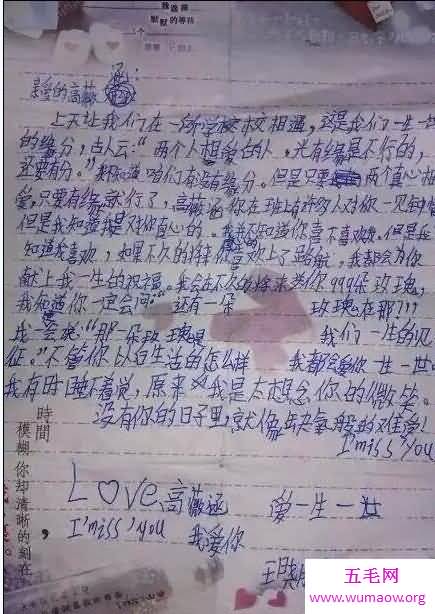 雅逸雅
默默的等待
涵：
亲爱的高薇
上天让我们在一所学校校相遇，这是我们一生一世
的缘分，古人云：“两个人想爱的人，光有缘是不行的，
还要有分。”我不知道咱们有没有缘分。但是只要两个真心相
爱，只要有缘就行了，高薇涵你在班上有许多人对你一见钟情
但是我知道我是对你真心的。我并不知道你喜不喜欢我。但是我
知道我喜欢，如果不久的将来你喜欢上了路航，我都会为你
献上我一生的祝福。我会在不久的将来送你999朵玫瑰，
我知道你一定会问“还有一朵玫瑰在那???
我一会说：“那一朵玫瑰是我们一生的见
征。”不管你以后生活的怎么样我都会爱你一生一世。
我有时睡不着觉，原来我是太想念你的微笑。
没有你的日子里，就像缺氧般的难受！
I'miss'you
時間
模糊你却清晰的刻在
Love高薇涵 爱一生一世
I'miss'you 我爱你
五毛网
www.wumaow.org